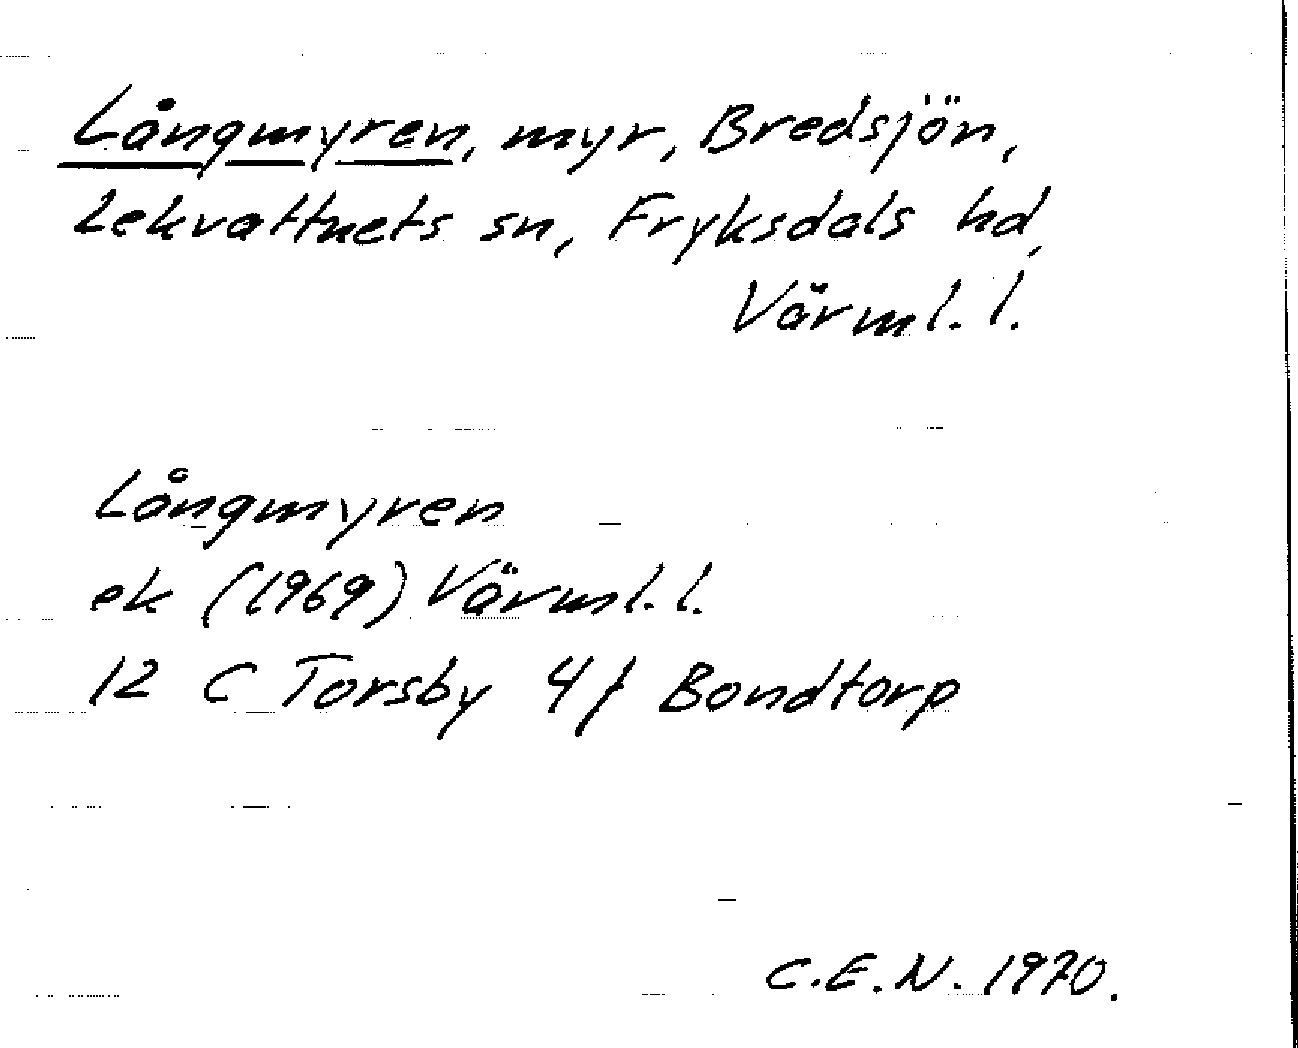 Långmyren, myr, Bredsjön,
Lekvattnets sn, Fryksdals hd,
Värml. l.
Långmyren
ek (1969) Värml. l.
12 C Torsby 4f Bondtorp
C.E.N. 1970.